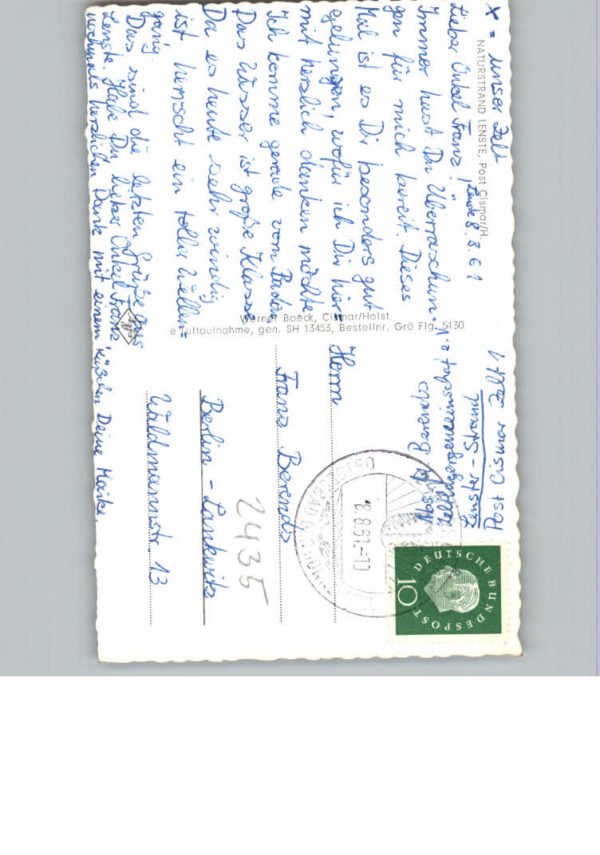 x = unser Zelt
NATURSTRAND LENSTE, Post Cismar/H.
Lenste 8.8.61
Lieber Onkel Franz!
Immer hast Du Überraschun-
gen für mich bereit. Dieses
Mal ist es Dir besonders gut
gelungen, wofür ich Dir hier-
mit herzlich danken möchte.
Ich komme gerade vom Baden.
Das Wasser ist große Klasse.
Da es heute sehr windig
ist herrscht ein toller Wellen=
gang.
Das sind die letzten Grüße aus
Lenste. Habe Du, lieber Onkel Franz,
nochmals herzlichen Dank mit einem
Deine
Werner Boeck, Cismar/Holst.
Luftaufnahme, gen. SH 13453, Bestellnr. Grö Flg. 5130
Post Cismar
Lenster-Strand
8.8.61-10
DEUTSCHE BUNDESPOST
10
Herrn
Franz Berends
Berlin-Lankwitz
Waldmannstr. 13
2435